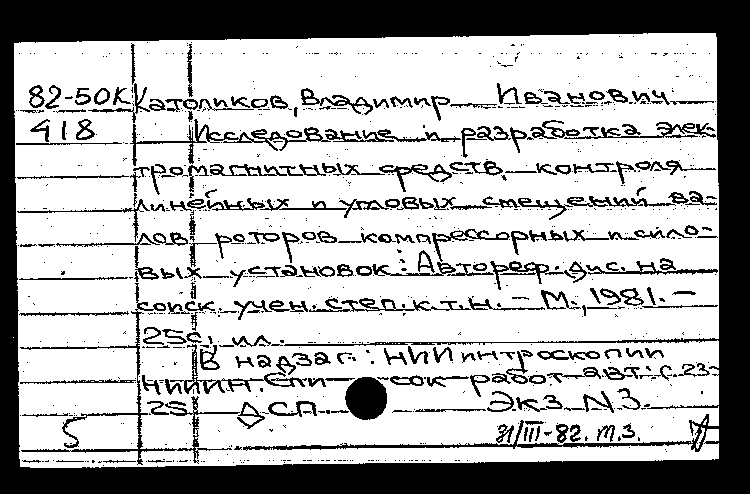 82-50К Католиков, Владимир Иванович
418 Исследование и разработка элек-
тромагнитных средств контроля
линейных и угловых смещений ва-
лов роторов компрессорных и сило-
вых установок: Автореф. дис. на
соиск. учен. степ. к.т.н. – М., 1981. –
25с, ил.
В надзаг.: НИИ интроскопии
НИИИН. Спи сок работ авт.: с. 23-
25 ДСП. Экз N3.
5 31/III-82. т.з.